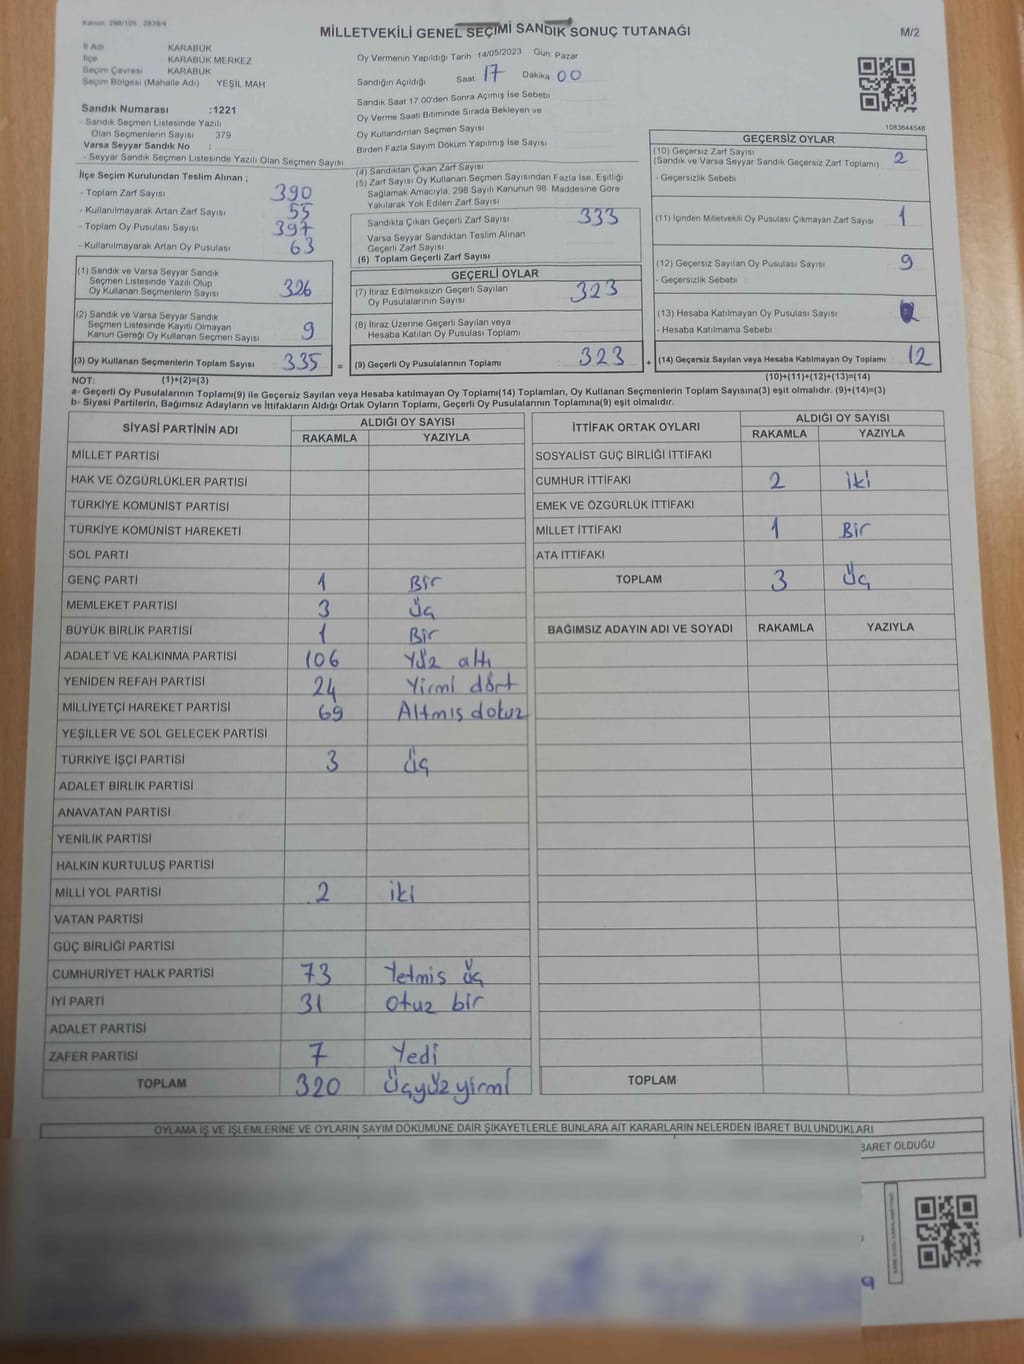 Kanun: 298/105 , 2839/4
MİLLETVEKİLİ GENEL SEÇİMİ SANDIK SONUÇ TUTANAĞI
M/2
İl Adı KARABÜK
İlçe KARABÜK MERKEZ
Seçim Çevresi KARABÜK
Seçim Bölgesi (Mahalle Adı) : YEŞİL MAH
Sandık Numarası :1221
- Sandık Seçmen Listesinde Yazılı
Olan Seçmenlerin Sayısı 379
Varsa Seyyar Sandık No :
- Seyyar Sandık Seçmen Listesinde Yazılı Olan Seçmen Sayısı
Oy Vermenin Yapıldığı Tarih 14/05/2023 Gün Pazar
Sandığın Açıldığı Saat 17 Dakika 00
Sandık Saat 17.00'den Sonra Açımış İse Sebebi
Oy Verme Saati Bitiminde Sırada Bekleyen ve
Oy Kullandırılan Seçmen Sayısı
Birden Fazla Sayım Döküm Yapılmış İse Sayısı
1083644548
İlçe Seçim Kurulundan Teslim Alınan ;
- Toplam Zarf Sayısı 390
- Kullanılmayarak Artan Zarf Sayısı 55
- Toplam Oy Pusulası Sayısı 397
- Kullanılmayarak Artan Oy Pusulası 63
(1) Sandık ve Varsa Seyyar Sandık
Seçmen Listesinde Yazılı Olup
Oy Kullanan Seçmenlerin Sayısı 326
(2) Sandık ve Varsa Seyyar Sandık
Seçmen Listesinde Kayıtlı Olmayan
Kanun Gereği Oy Kullanan Seçmen Sayısı 9
(3) Oy Kullanan Seçmenlerin Toplam Sayısı 335 =
(4) Sandıktan Çıkan Zarf Sayısı
(5) Zarf Sayısı Oy Kullanan Seçmen Sayısından Fazla İse, Eşitliği
Sağlamak Amacıyla, 298 Sayılı Kanunun 98. Maddesine Göre
Yakılarak Yok Edilen Zarf Sayısı
Sandıkta Çıkan Geçerli Zarf Sayısı 333
Varsa Seyyar Sandıktan Teslim Alınan
Geçerli Zarf Sayısı
(6) Toplam Geçerli Zarf Sayısı
GEÇERLİ OYLAR
(7) İtiraz Edilmeksizin Geçerli Sayılan
Oy Pusulalarının Sayısı 323
(8) İtiraz Üzerine Geçerli Sayılan veya
Hesaba Katılan Oy Pusulası Toplamı
(9) Geçerli Oy Pusulalarının Toplamı 323 +
GEÇERSİZ OYLAR
(10) Geçersiz Zarf Sayısı
(Sandık ve Varsa Seyyar Sandık Geçersiz Zarf Toplamı) 2
- Geçersizlik Sebebi
(11) İçinden Milletvekili Oy Pusulası Çıkmayan Zarf Sayısı 1
(12) Geçersiz Sayılan Oy Pusulası Sayısı 9
- Geçersizlik Sebebi
(13) Hesaba Katılmayan Oy Pusulası Sayısı
- Hesaba Katılmama Sebebi
(14) Geçersiz Sayılan veya Hesaba Katılmayan Oy Toplamı 12
NOT: (1)+(2)=(3) (10)+(11)+(12)+(13)=(14)
a- Geçerli Oy Pusulalarının Toplamı(9) ile Geçersiz Sayılan veya Hesaba katılmayan Oy Toplamı(14) Toplamları, Oy Kullanan Seçmenlerin Toplam Sayısına(3) eşit olmalıdır. (9)+(14)=(3)
b- Siyasi Partilerin, Bağımsız Adayların ve İttifakların Aldığı Ortak Oyların Toplamı, Geçerli Oy Pusulalarının Toplamına(9) eşit olmalıdır.
SİYASİ PARTİNİN ADI ALDIĞI OY SAYISI
RAKAMLA YAZIYLA
MİLLET PARTİSİ
HAK VE ÖZGÜRLÜKLER PARTİSİ
TÜRKİYE KOMÜNİST PARTİSİ
TÜRKİYE KOMÜNİST HAREKETİ
SOL PARTİ
GENÇ PARTİ 1 Bir
MEMLEKET PARTİSİ 3 Üç
BÜYÜK BİRLİK PARTİSİ 1 Bir
ADALET VE KALKINMA PARTİSİ 106 Yüz altı
YENİDEN REFAH PARTİSİ 24 Yirmi dört
MİLLİYETÇİ HAREKET PARTİSİ 69 Altmış dokuz
YEŞİLLER VE SOL GELECEK PARTİSİ
TÜRKİYE İŞÇİ PARTİSİ 3 Üç
ADALET BİRLİK PARTİSİ
ANAVATAN PARTİSİ
YENİLİK PARTİSİ
HALKIN KURTULUŞ PARTİSİ
MİLLİ YOL PARTİSİ 2 iki
VATAN PARTİSİ
GÜÇ BİRLİĞİ PARTİSİ
CUMHURİYET HALK PARTİSİ 73 Yetmiş üç
İYİ PARTİ 31 Otuz bir
ADALET PARTİSİ
ZAFER PARTİSİ 7 Yedi
TOPLAM 320 Üçyüz yirmi
İTTİFAK ORTAK OYLARI ALDIĞI OY SAYISI
RAKAMLA YAZIYLA
SOSYALİST GÜÇ BİRLİĞİ İTTİFAKI
CUMHUR İTTİFAKI 2 iki
EMEK VE ÖZGÜRLÜK İTTİFAKI
MİLLET İTTİFAKI 1 Bir
ATA İTTİFAKI
TOPLAM 3 Üç
BAĞIMSIZ ADAYIN ADI VE SOYADI RAKAMLA YAZIYLA
TOPLAM
OYLAMA İŞ VE İŞLEMLERİNE VE OYLARIN SAYIM DÖKÜMÜNE DAİR ŞİKAYETLERLE BUNLARA AİT KARARLARIN NELERDEN İBARET BULUNDUKLARI
BARET OLDUĞU